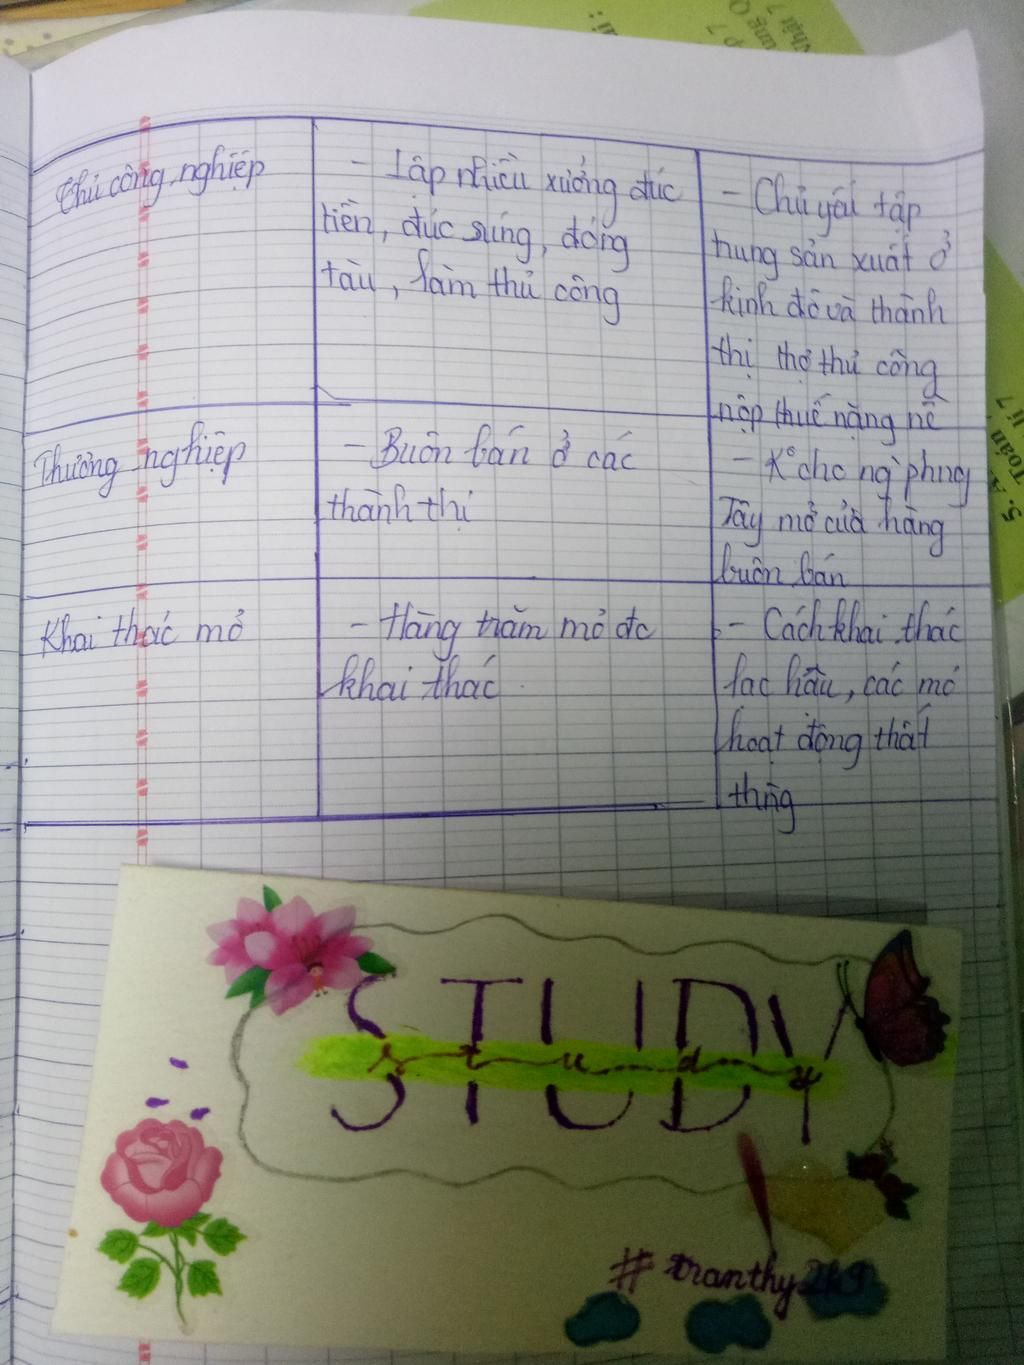 Thủ công nghiệp
- Lập nhiều xưởng đúc
tiền, đúc súng, đóng
tàu, làm thủ công
- Chủ yếu tập
trung sản xuất ở
kinh đô và thành
thị thợ thủ công
nộp thuế nặng nề
Thương nghiệp
- Buôn bán ở các
thành thị
- K° cho ng` phng
Tây mở cửa hàng
buôn bán
Khai thác mỏ
- Hàng trăm mỏ đc
khai thác.
- Cách khai thác
lạc hậu, các mỏ
hoạt động thất
thng
STUDY
study
# tranthy2k9
5. A
Toán
ji 7